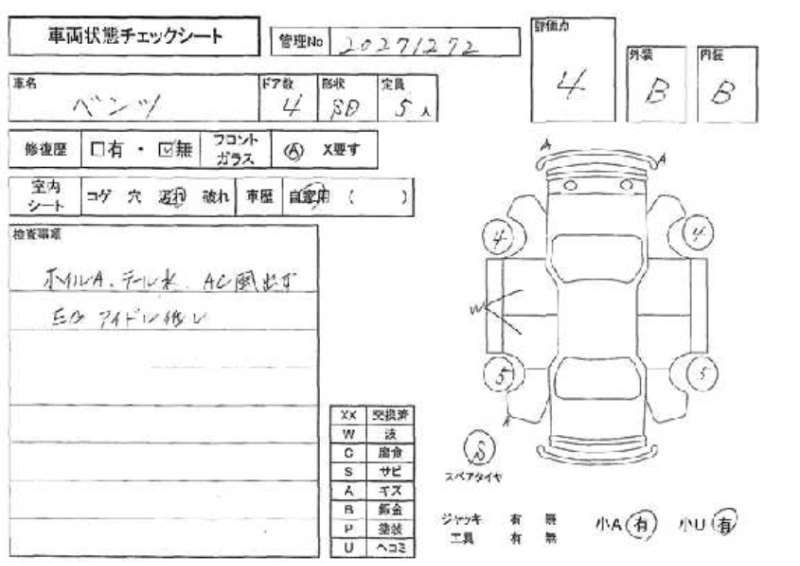 車両状態チェックシート
管理No 20271272
評価点 4
外装 B
内装 B
車名 ベンツ
ドア数 4
形状 SD
定員 5人
修復歴 □有・☑無
フロントガラス Ⓐ X要す
室内シート コゲ 穴 汚れ 破れ
車歴 自家用 ( )
検査事項
ホイルA、テール水、AC風出ず
アイドル低い
A
A
4
4
W
5
5
A
S
スペアタイヤ
XX 交換済
W 波
C 腐食
S サビ
A キズ
B 鈑金
P 塗装
U ヘコミ
ジャッキ 有 無
工具 有 無
小A 有 小U 有